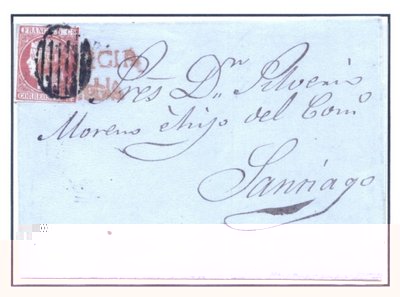 FRANCO 6 Cs
CORREOS
Sres Dn Silverio
Moreno é hijo del Como
Santiago